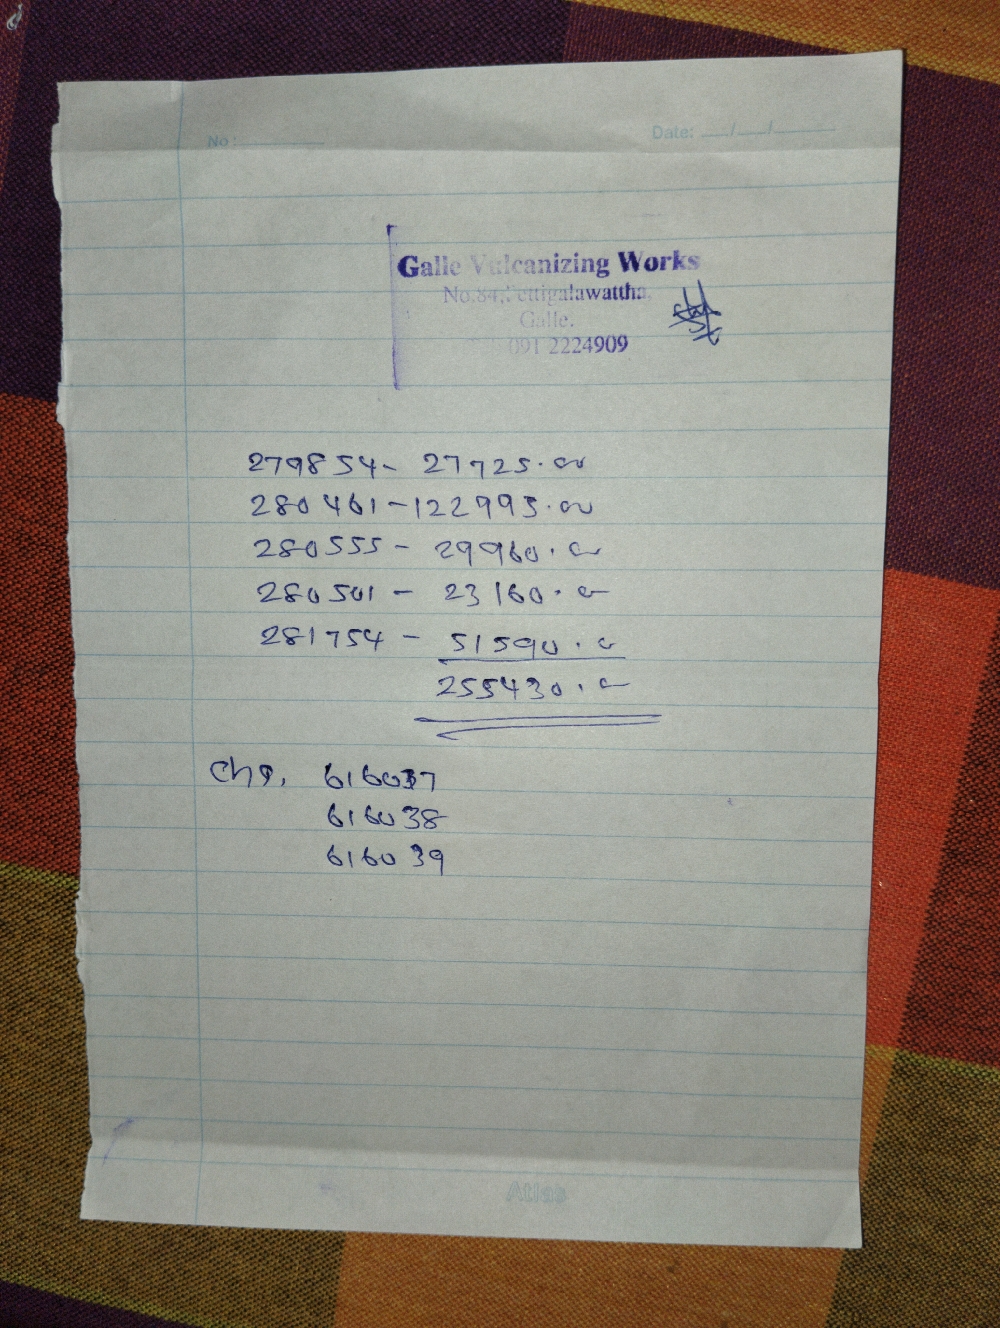 No :
Date: __/__/____
Galle Vulcanizing Works
No.84, Pettigalawattha,
Galle.
091 2224909
279854- 27725.00
280461-122995.00
280555- 29960.00
280501- 23160.00
281754- 51590.00
255430.00
Chq. 616037
616038
616039
Atlas